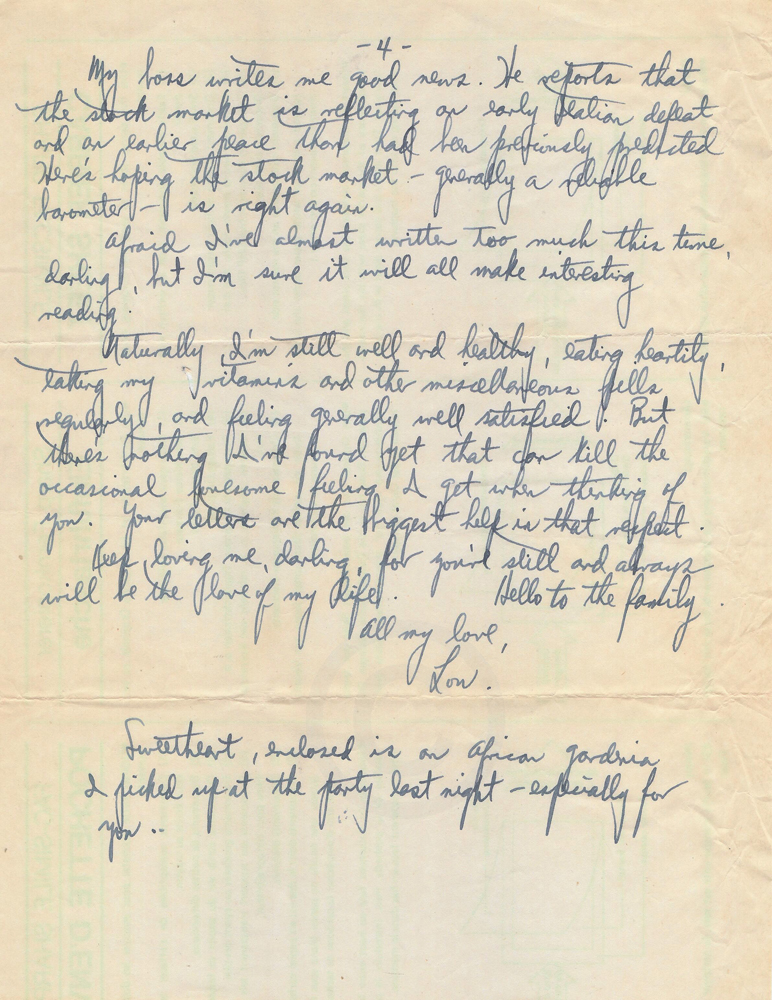 -4-
My boss writes me good news. He reports that
the stock market is reflecting an early Italian defeat
and an earlier peace than had been previously predicted
Here's hoping the stock market - generally a reliable
barometer - is right again.
Afraid I've almost written too much this time,
darling, but I'm sure it will all make interesting
reading.
Naturally, I'm still well and healthy, eating heartily,
taking my vitamins and other miscellaneous pills
regularly, and feeling generally well satisfied. But
there's nothing I've found yet that can kill the
occasional lonesome feeling I get when thinking of
you. Your letters are the biggest help in that respect.
Keep loving me, darling, for you're still and always
will be the love of my life. Hello to the family.
All my love,
Lou.
Sweetheart, enclosed is an African gardenia
I picked up at the party last night - especially for
you..